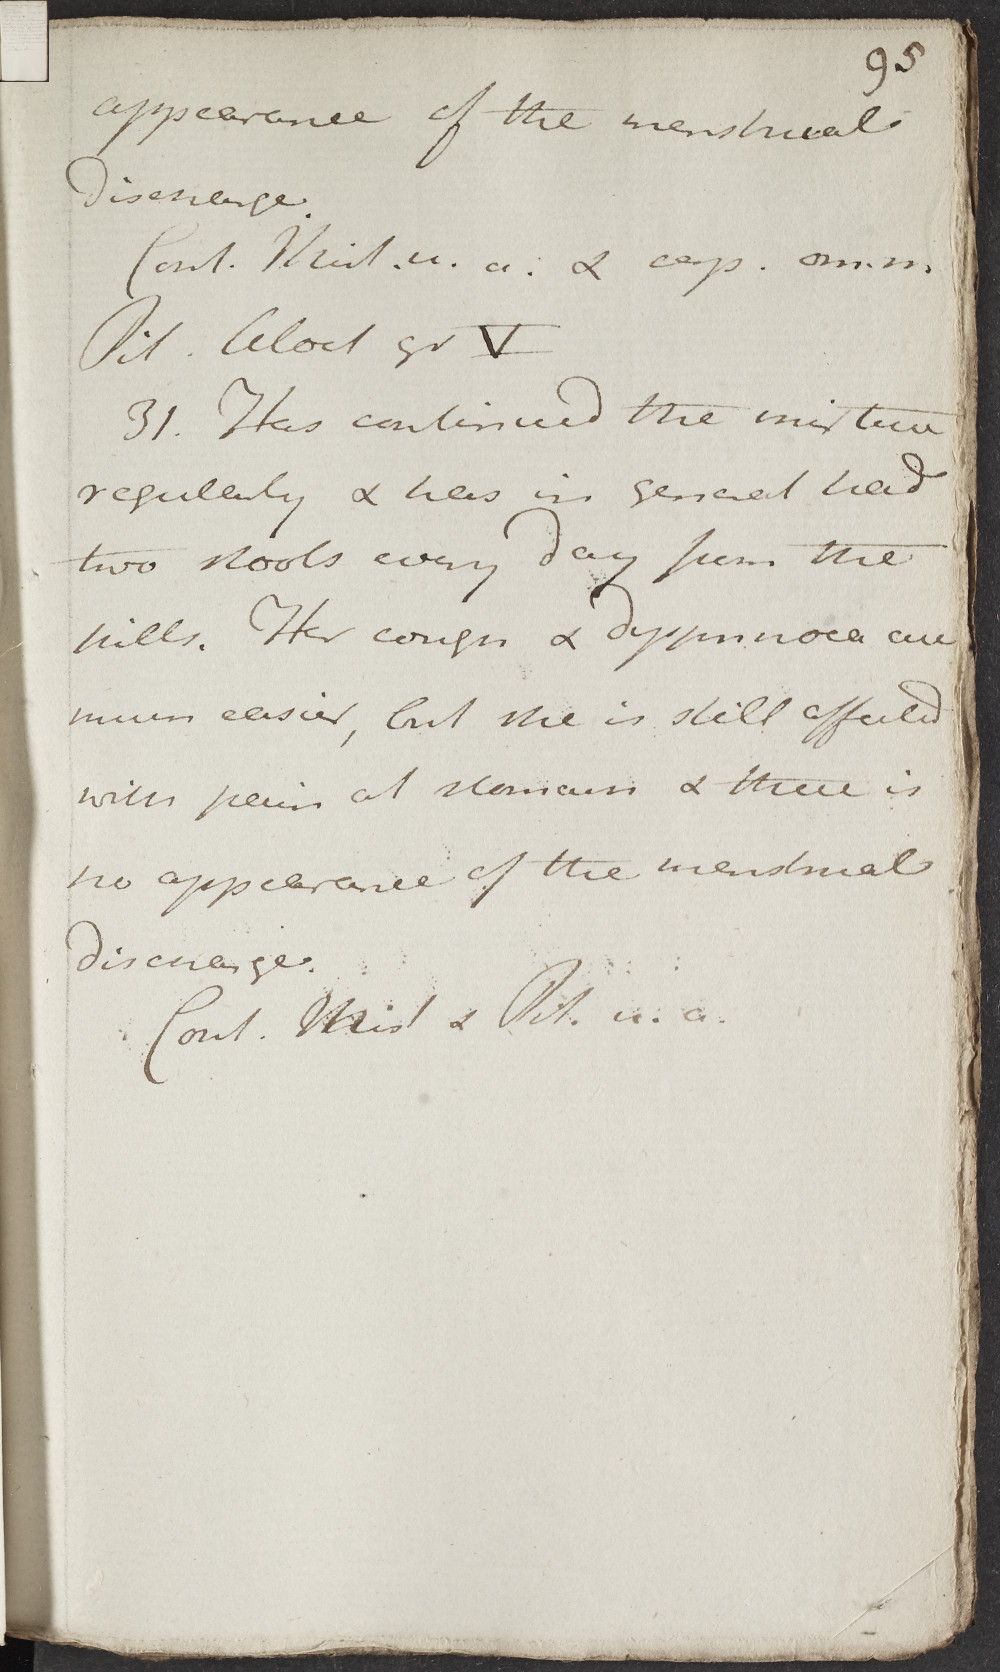 95
appearance of the menstrual
discharge.
Cont. Mist. u. a. & cap. om. n.
Pil. Aloet gr V
31. Has continued the mixture
regularly & has in general had
two stools every day from the
pills. Her cough & dyspnoea are
much easier, but she is still affected
with pain at stomach & there is
no appearance of the menstrual
discharge.
Cont. Mist & Pil. u. a.